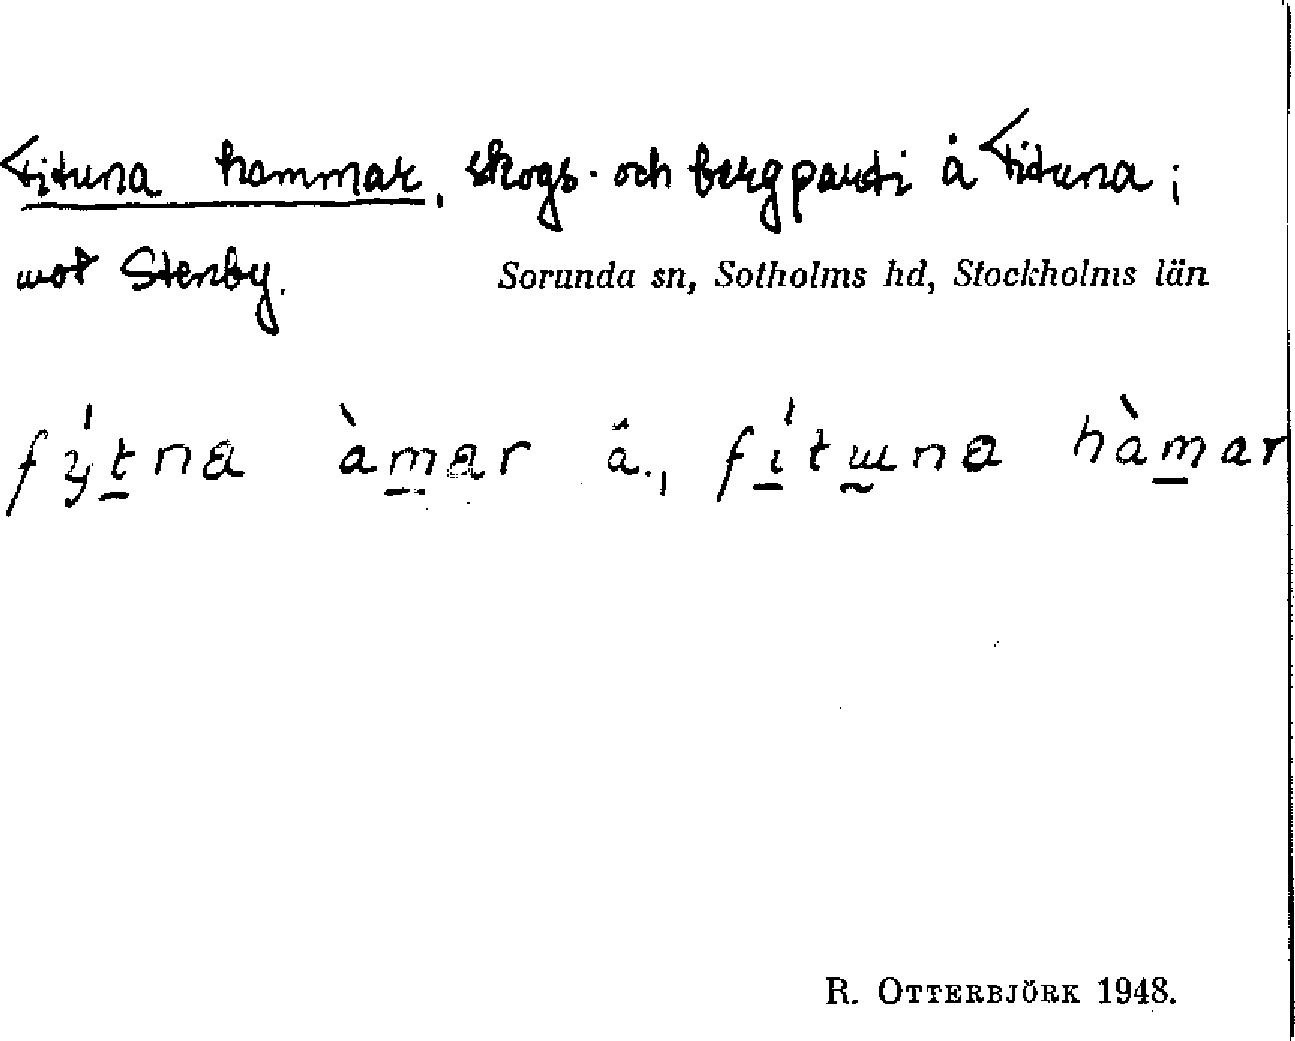 Fituna hammar, skogs- och bergparti å Fituna;
mot Stenby.
Sorunda sn, Sotholms hd, Stockholms län
fý́t̲na àm̲ar â., fí̲tɯ̰na hàm̲ar
R. OTTERBJÖRK 1948.